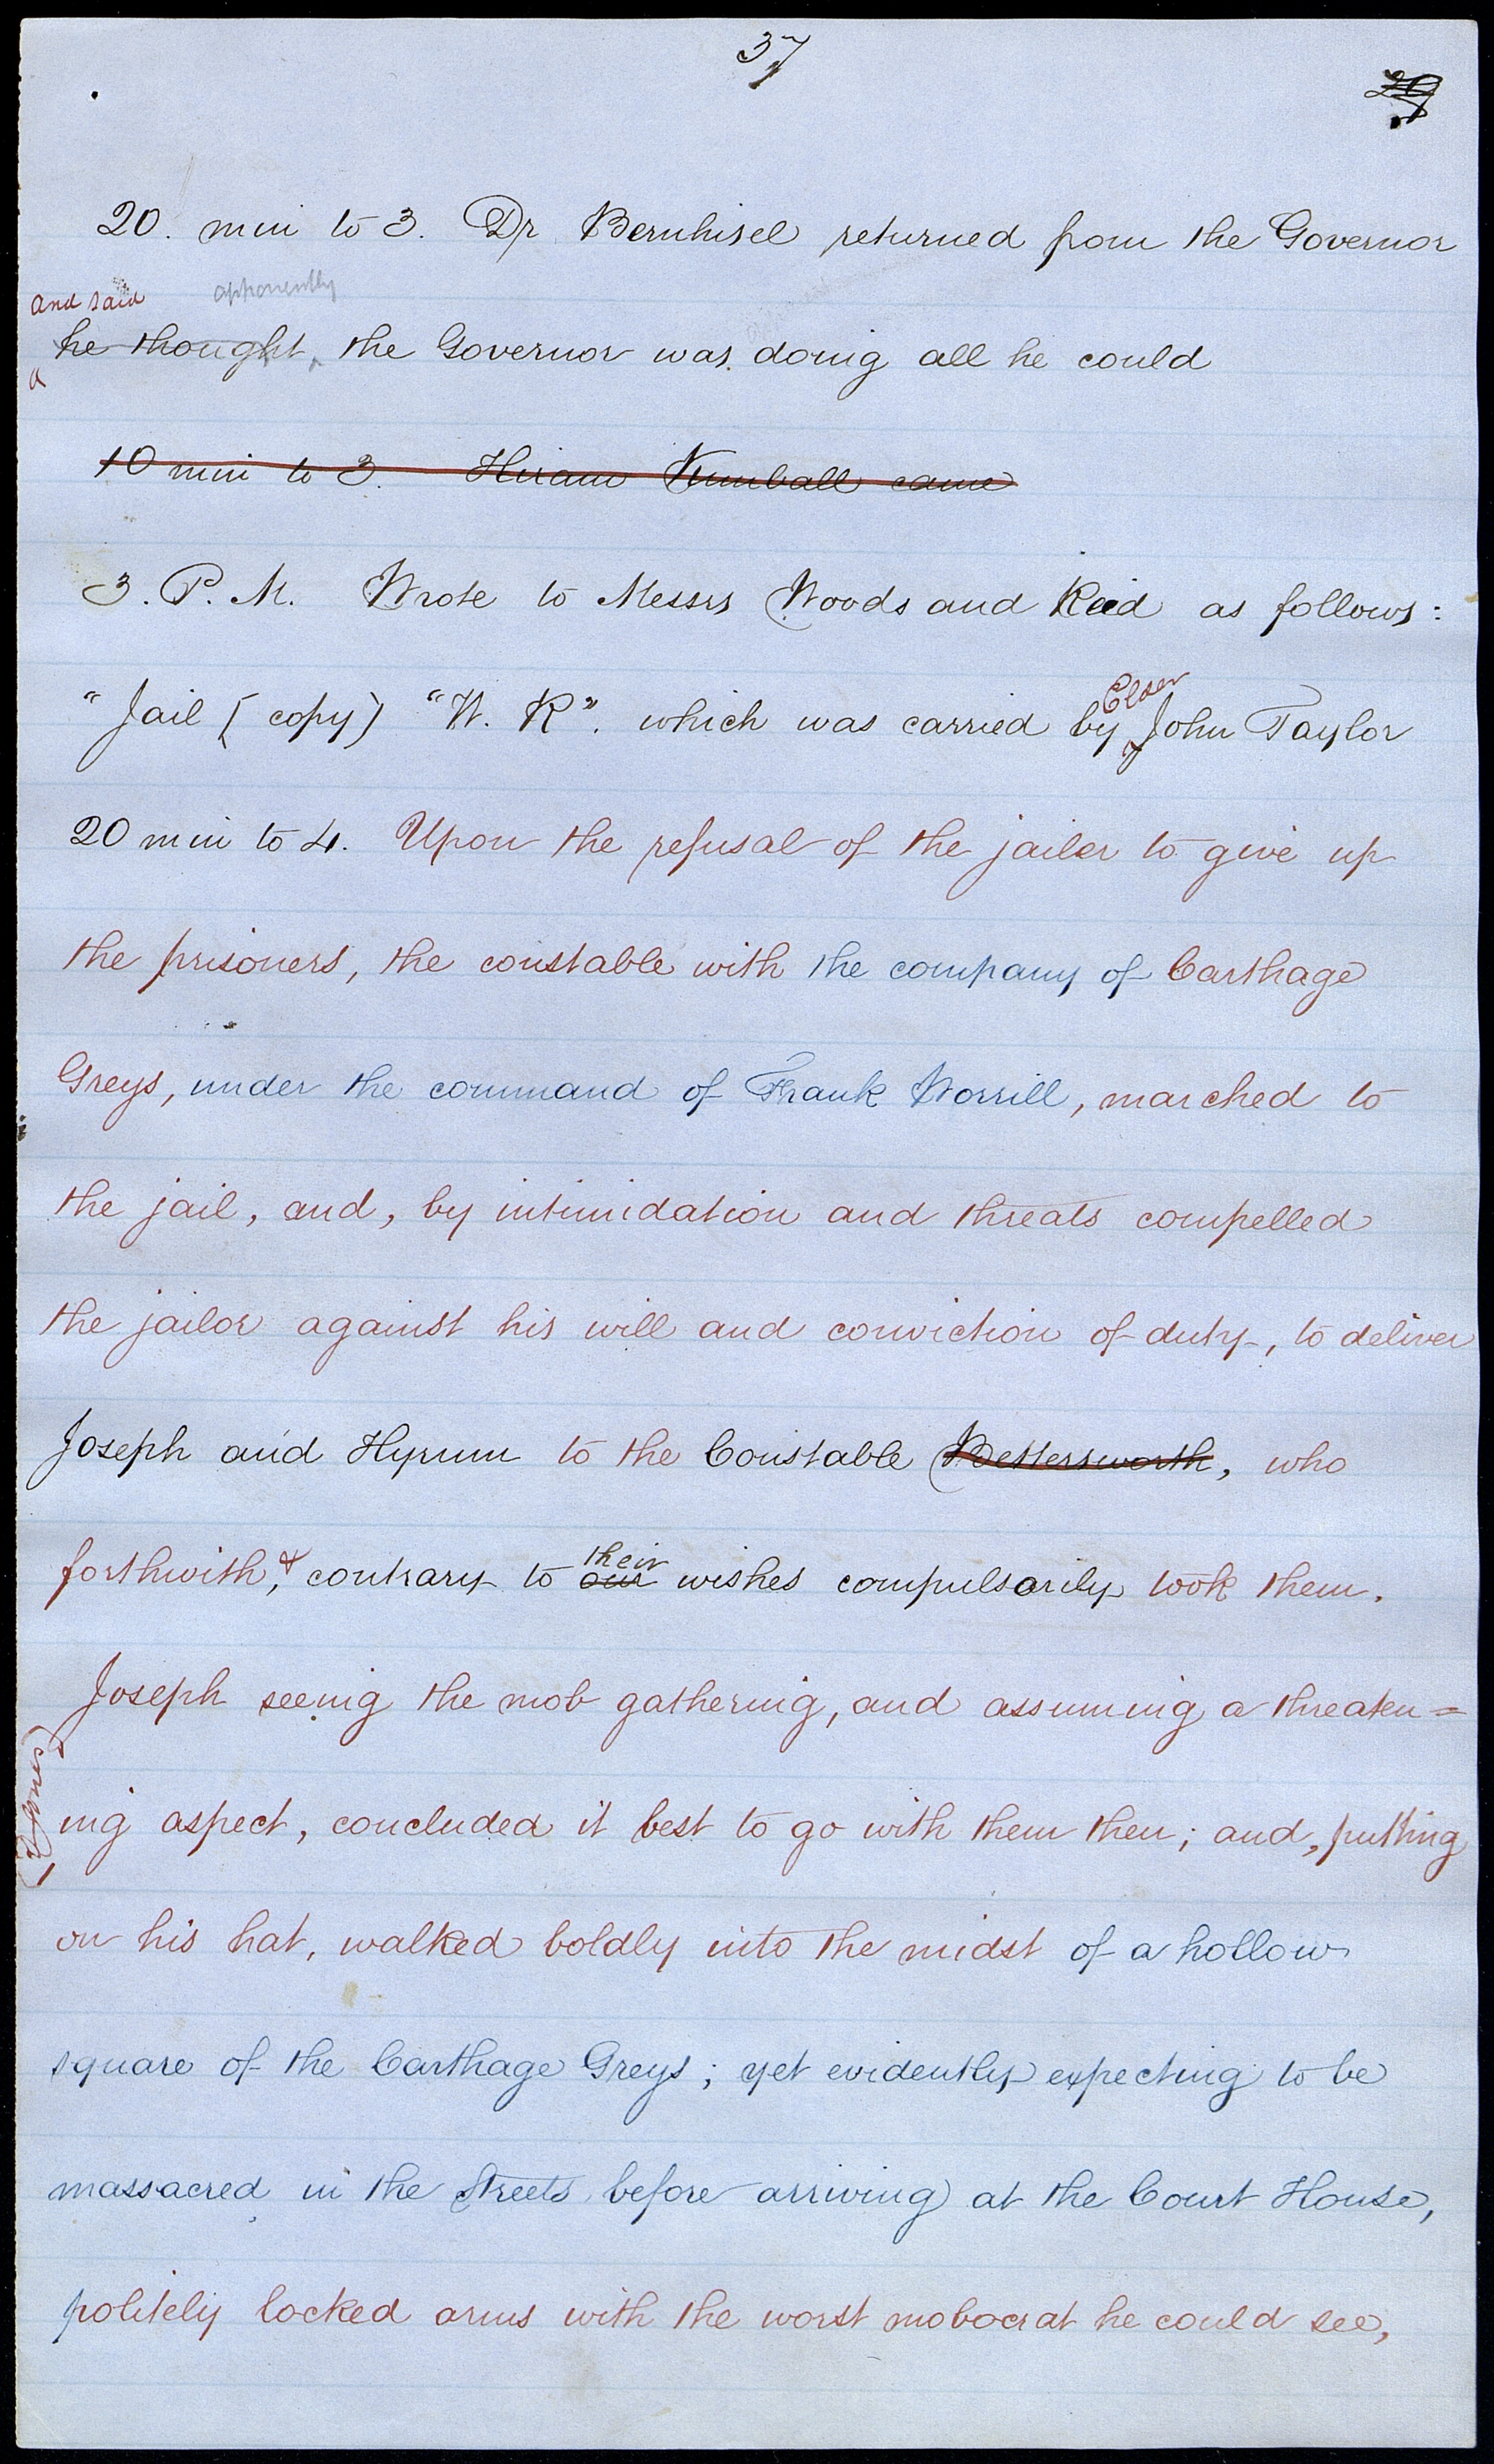 37
29
20. min to 3. Dr Bernhisel returned from the Governor
and said apparently
he thought the Governor was doing all he could
10 min to 3. Hiram Kimball came
3. P. M. Wrote to Messrs Woods and Reid as follows:
Elder
"Jail (copy) "W. R". which was carried by John Taylor
20 min to 4. Upon the refusal of the jailer to give up
the prisoners, the constable with the company of Carthage
Greys, under the command of Frank Worrill, marched to
the jail, and, by intimidation and threats compelled
the jailor against his will and conviction of duty, to deliver
Joseph and Hyrum to the Constable Bettersworth, who
their
forthwith, & contrary to our wishes compulsorily took them.
Joseph seeing the mob gathering, and assuming a threaten=
(C. Jones)
ing aspect, concluded it best to go with them then; and, putting
on his hat, walked boldly into the midst of a hollow
square of the Carthage Greys; yet evidently expecting to be
massacred in the streets before arriving at the Court House,
politely locked arms with the worst mobocrat he could see,